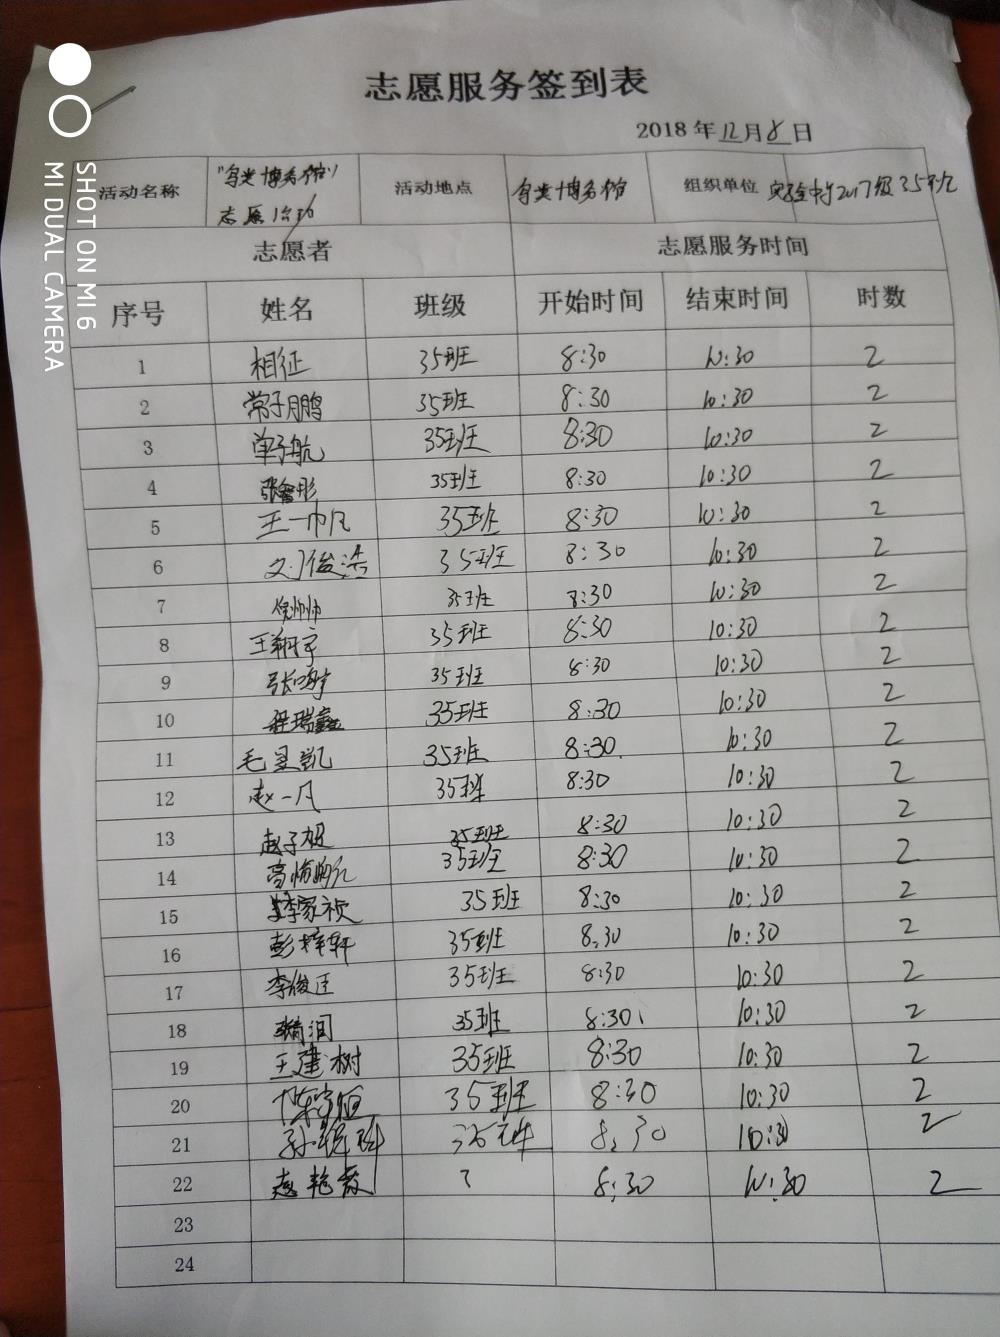 志愿服务签到表
2018 年 12 月 8 日
活动名称 志愿活动 活动地点 组织单位 实验中学2017级35班
志愿者 志愿服务时间
序号 姓名 班级 开始时间 结束时间 时数
1 相征 35班 8:30 10:30 2
2 常子鹏 35班 8:30 10:30 2
3 单子航 35班 8:30 10:30 2
4 35班 8:30 10:30 2
5 王一帆 35班 8:30 10:30 2
6 刘俊浩 35班 8:30 10:30 2
7 倪帅帅 35班 8:30 10:30 2
8 王翔宇 35班 8:30 10:30 2
9 35班 8:30 10:30 2
10 程瑞鑫 35班 8:30 10:30 2
11 毛昱凯 35班 8:30 10:30 2
12 赵一凡 35班 8:30 10:30 2
13 35班 8:30 10:30 2
14 35班 8:30 10:30 2
15 李家祯 35班 8:30 10:30 2
16 彭梓轩 35班 8:30 10:30 2
17 李俊廷 35班 8:30 10:30 2
18 35班 8:30 10:30 2
19 王建树 35班 8:30 10:30 2
20 35班 8:30 10:30 2
21 35班 8:30 10:30 2
22 8:30 10:30 2
23
24
SHOT ON MI 6
MI DUAL CAMERA